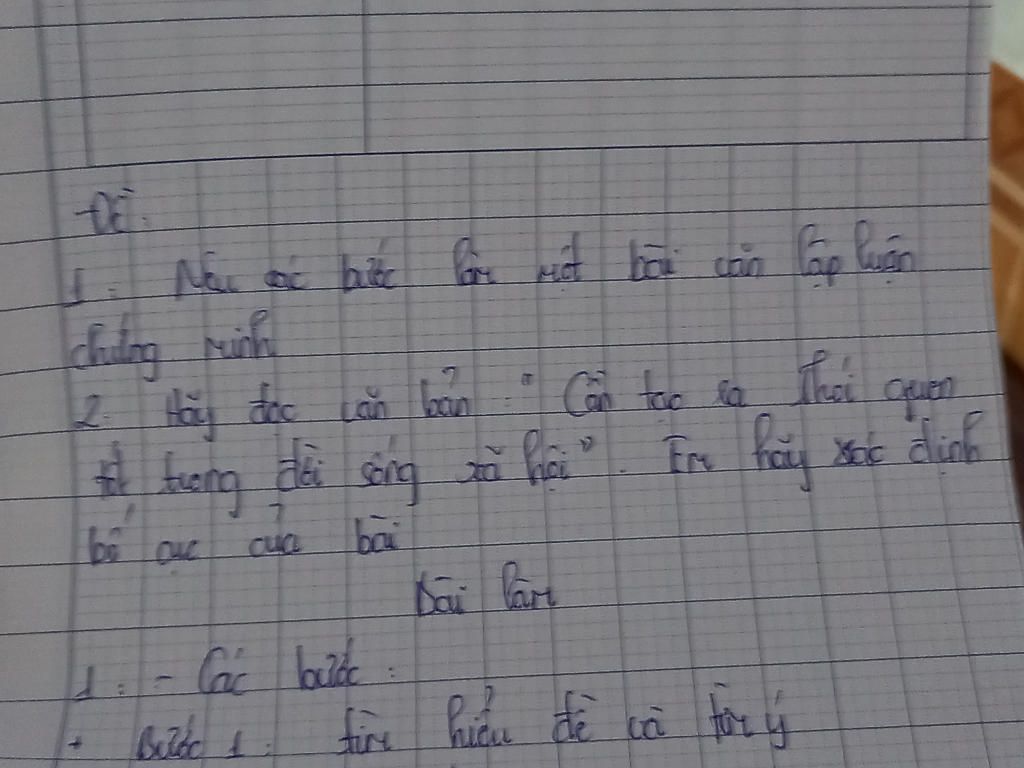 Đề:
1: Nêu các bước làm một bài văn lập luận
chứng minh
2: Hãy đọc văn bản: "Cần tạo ra thói quen
tốt trong đời sống xã hội". Em hãy xác định
bố cục của bài
Bài làm
1: - Các bước:
+ Bước 1: tìm hiểu đề và tìm ý